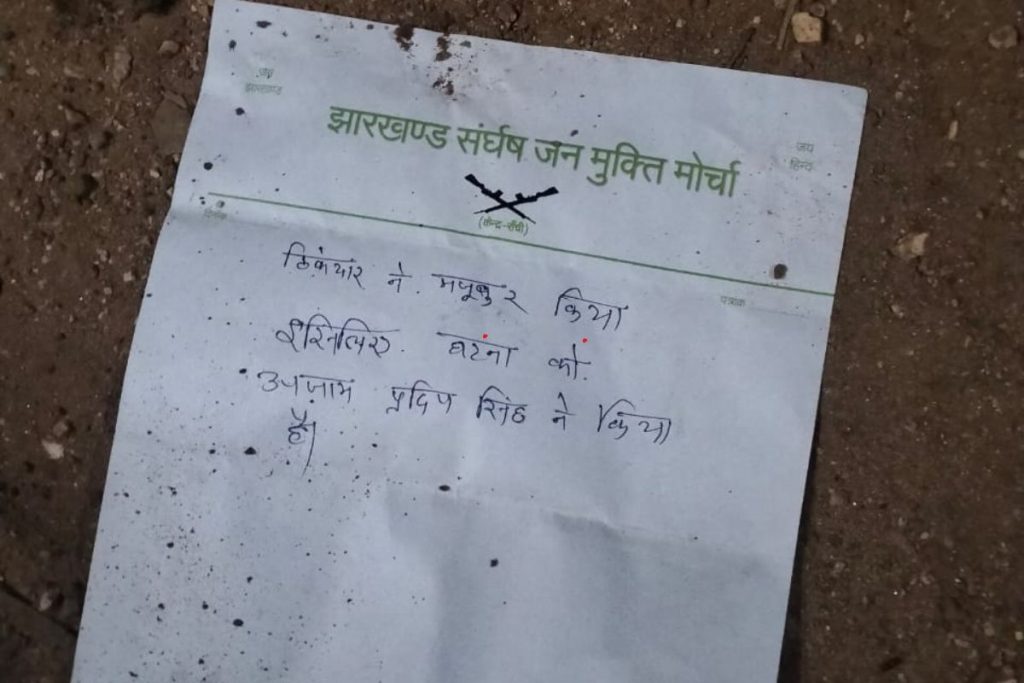 जय
झारखण्ड
झारखण्ड संर्घष जन मुक्ति मोर्चा
जय
हिन्द
(केन्द्र-राँची)
दिनांक
पत्रांक
ठिकेयार ने मजबुर किया
इसलिए घटना को
अंजाम प्रदिप सिंह ने किया
है।